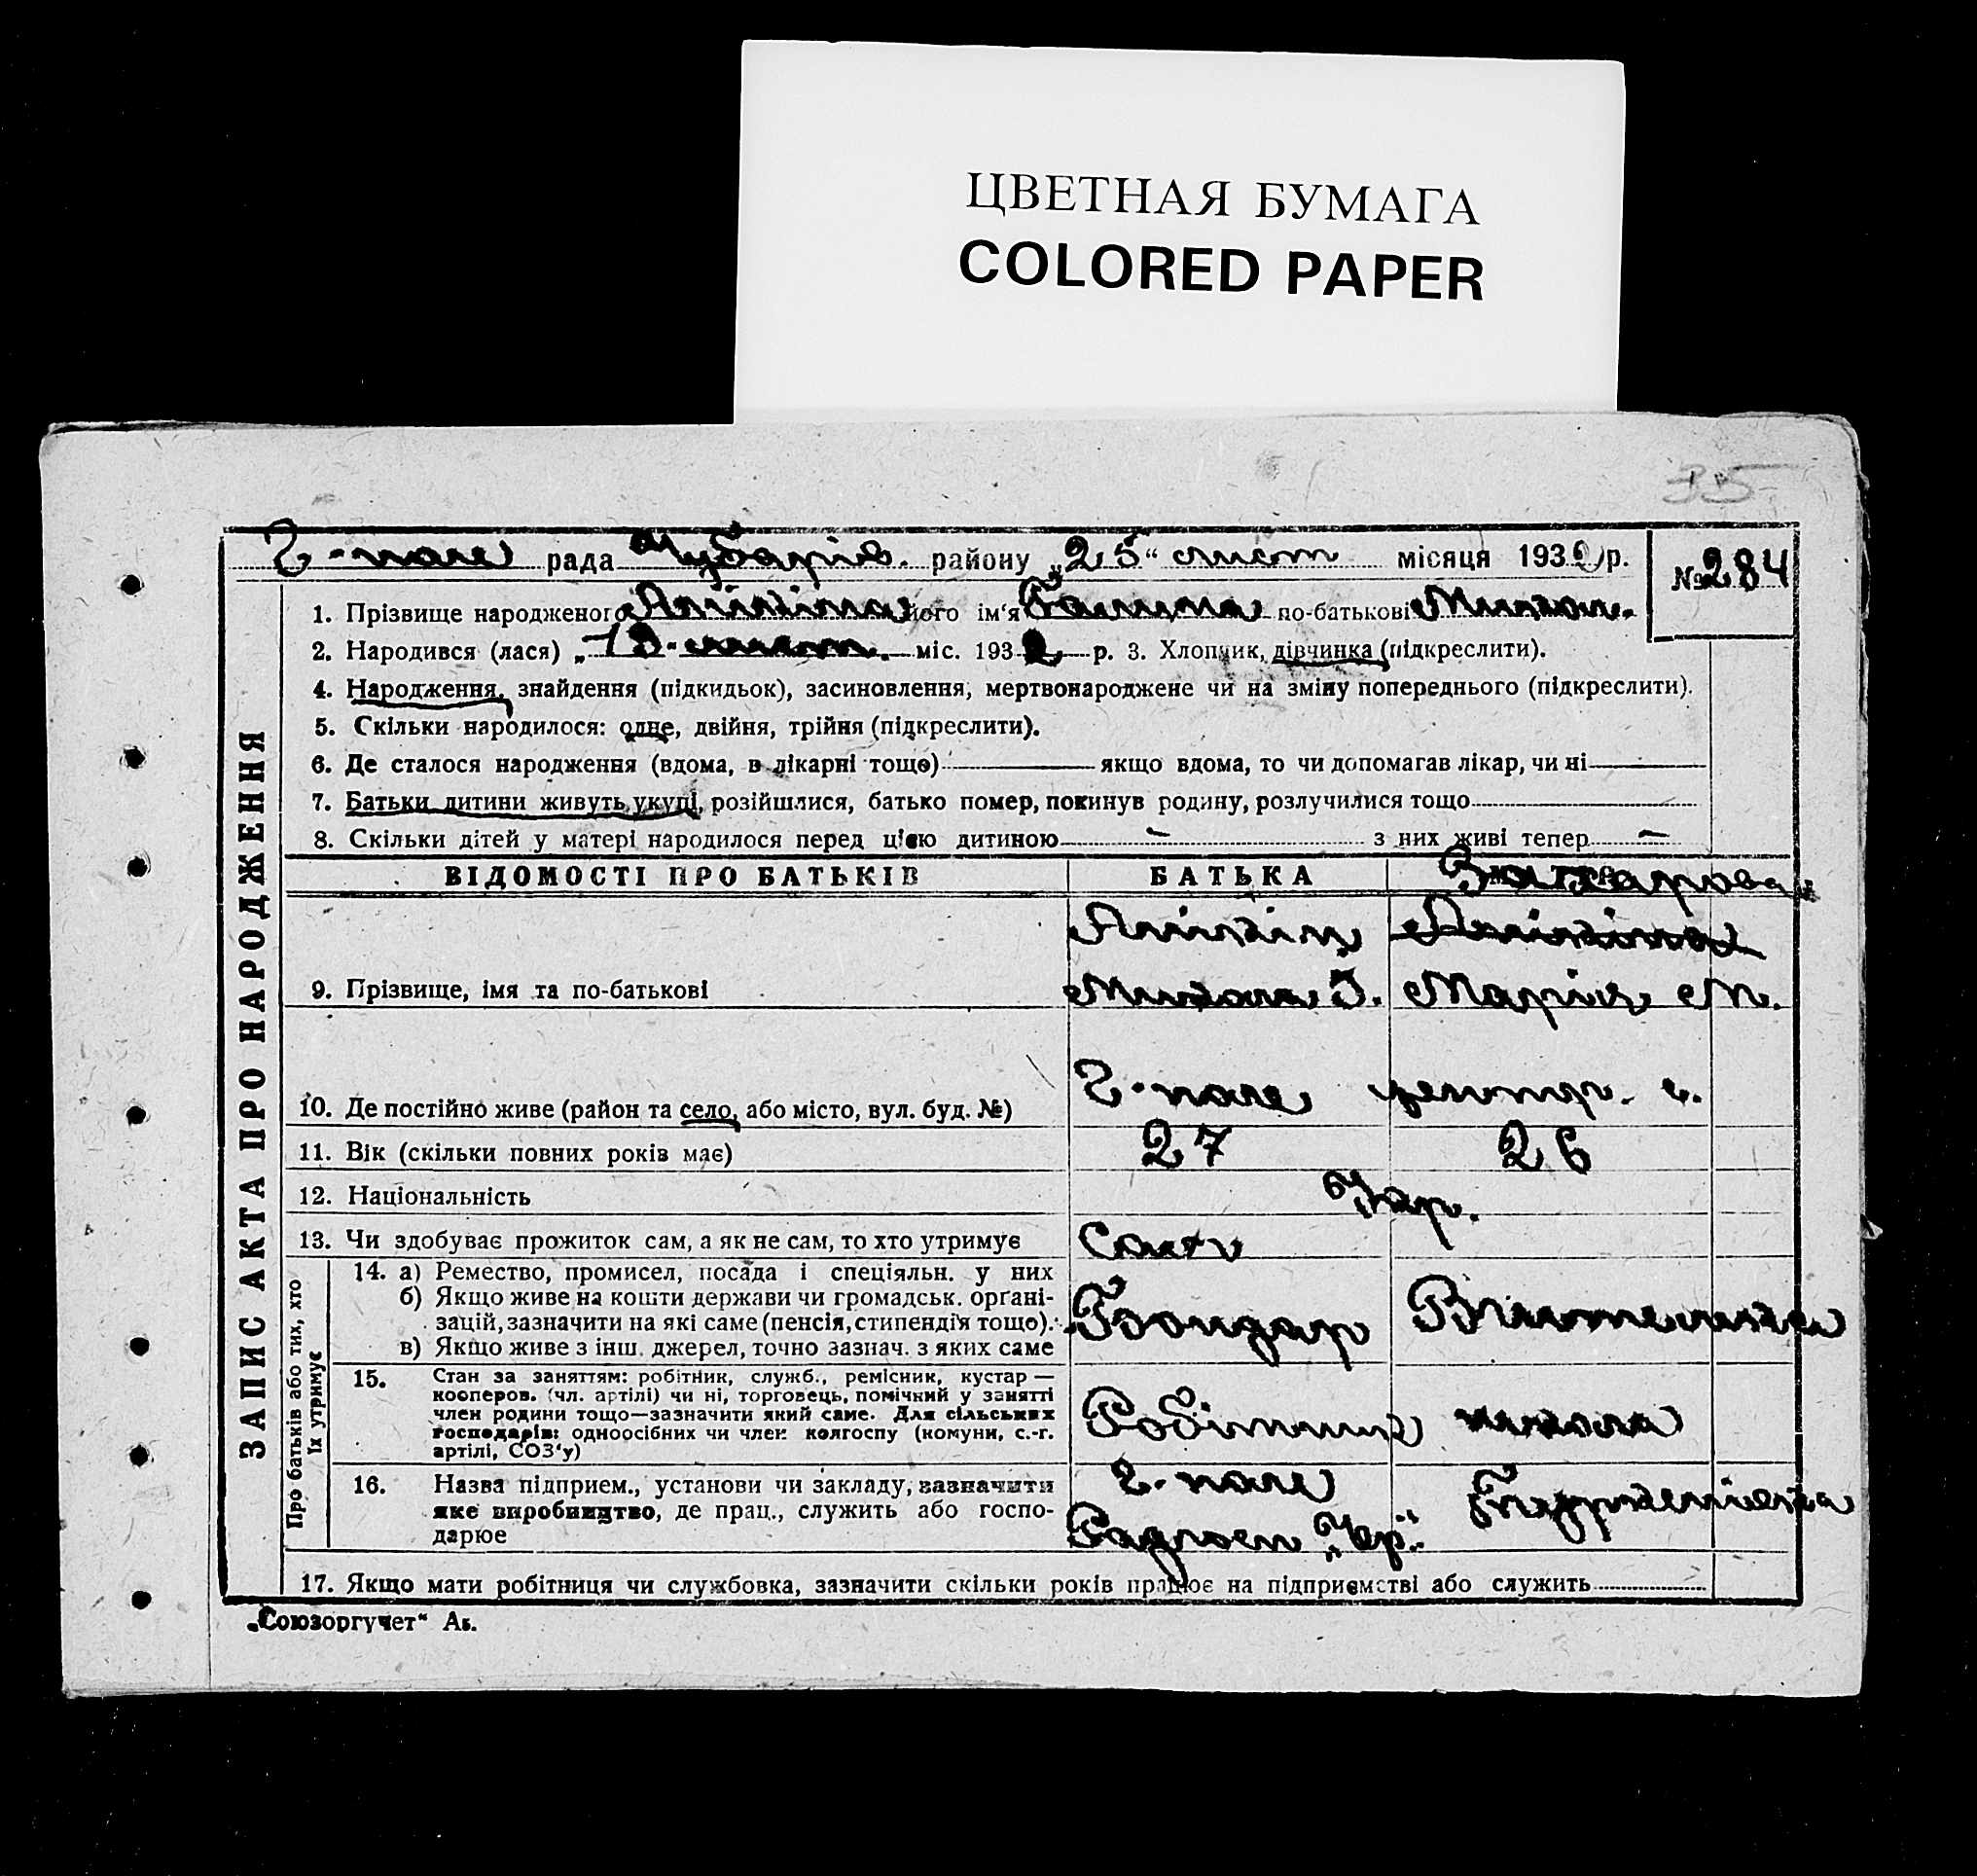 ЦВЕТНАЯ БУМАГА
COLORED PAPER
35
Г-поле рада Чубарів. району „25“ лист місяця 1932 р. № 284
1. Прізвище народженого його ім‘я Галина по-батькові
2. Народився (лася) „ лист. міс. 1932 р. 3. Хлопчик, дівчинка (підкреслити).
4. Народження, знайдення (підкидьок), засиновлення, мертвонароджене чи на зміну попереднього (підкреслити).
5. Скільки народилося: одне, двійня, трійня (підкреслити).
6. Де сталося народження (вдома, в лікарні тощо) — якщо вдома, то чи допомагав лікар, чи ні —
7. Батьки дитини живуть укупі, розійшлися, батько помер, покинув родину, розлучилися тощо
8. Скільки дітей у матері народилося перед цією дитиною — з них живі тепер —
ЗАПИС АКТА ПРО НАРОДЖЕННЯ
ВІДОМОСТІ ПРО БАТЬКІВ БАТЬКА
9. Прізвище, імя та по-батькові Марія М.
10. Де постійно живе (район та село, або місто, вул. буд. №) Г-поле центр. с.
11. Вік (скільки повних років має) 27 26
12. Національність Укр.
13. Чи здобуває прожиток сам, а як не сам, то хто утримує Сам
Про батьків або тих, хто
їх утримує
14. а) Ремество, промисел, посада і спеціяльн. у них
б) Якщо живе на кошти держави чи громадськ. орґані-
зацій, зазначити на які саме (пенсія, стипендія тощо). Бондар Вчителька
в) Якщо живе з інш. джерел, точно зазнач. з яких саме
15. Стан за заняттям: робітник, служб., ремісник, кустар —
кооперов. (чл. артілі) чи ні, торговець, помічний у занятті
член родини тощо—зазначити який саме. Для сільських Робітник школа
господарів: одноосібних чи член колгоспу (комуни, с.-г.
артілі, СОЗ‘у)
16. Назва підприєм., установи чи закладу, зазначити Г-поле
яке виробництво, де прац., служить або госпо- Радгосп „Укр“
дарює
17. Якщо мати робітниця чи службовка, зазначити скільки років працює на підприємстві або служить
„Союзоргучет“ Аб.